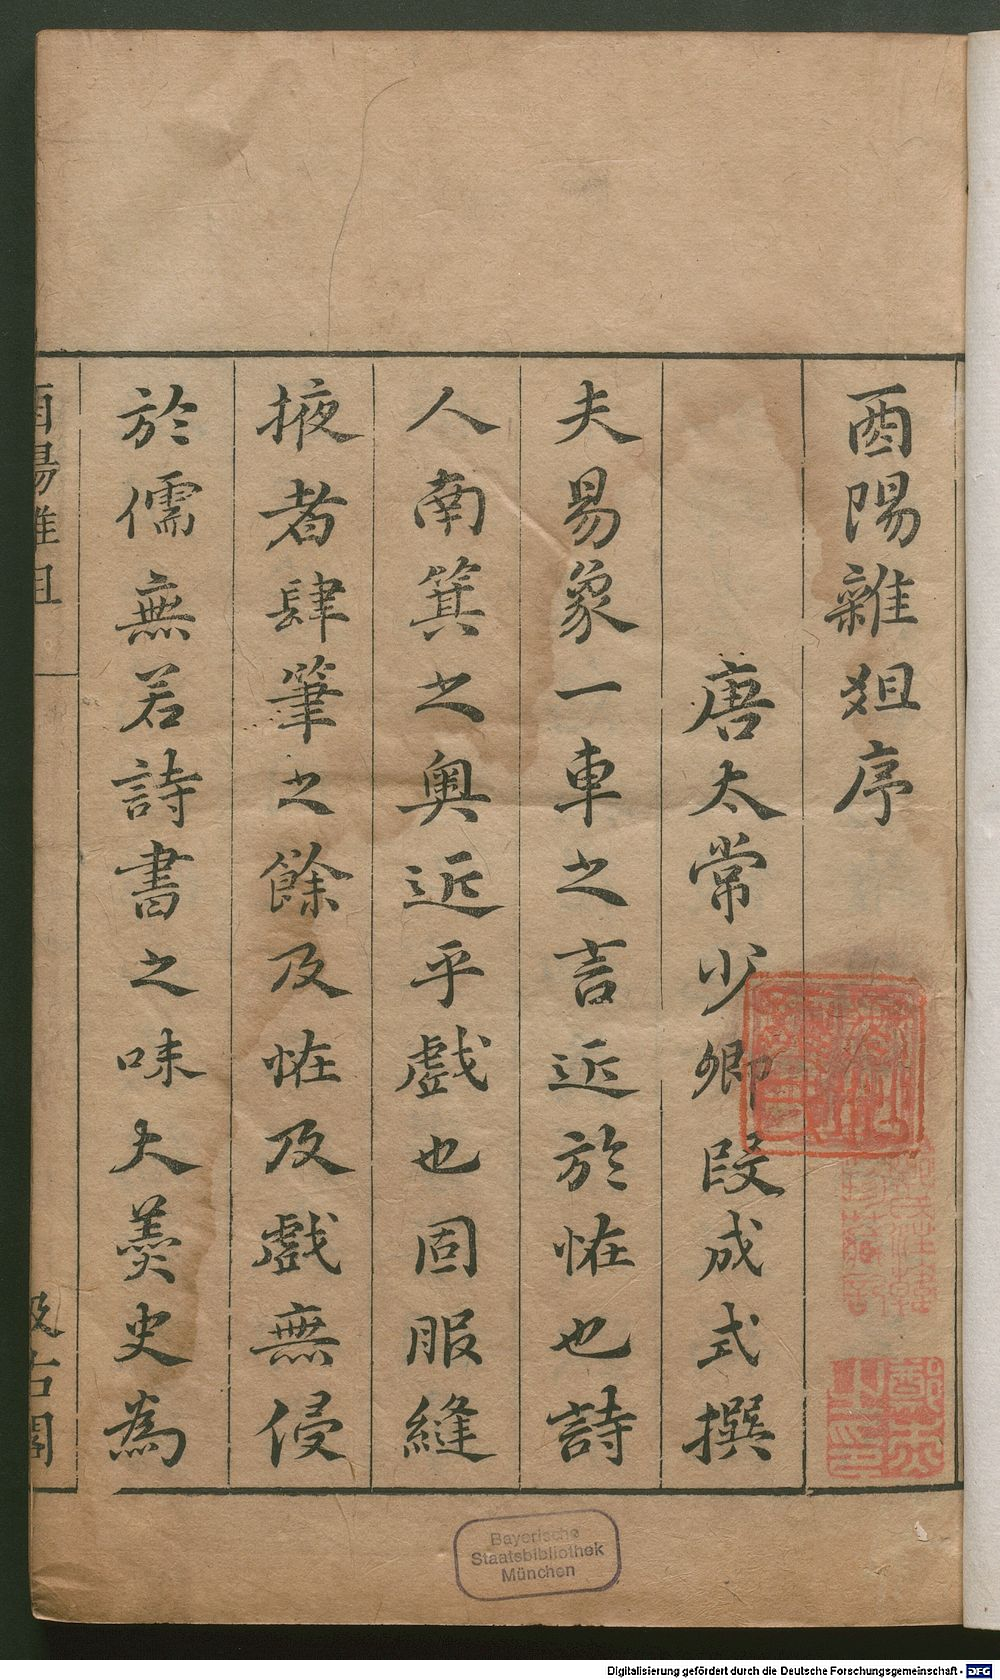 酉陽雜俎序
唐太常少卿段成式撰
夫易象一車之言近於怪也詩
人南箕之奧近乎戲也固服縫
掖者肆筆之餘及怪及戲無侵
於儒無若詩書之味大羹史為
酉陽雜俎
汲古閣
Bayerische
Staatsbibliothek
München
Digitalisierung gefördert durch die Deutsche Forschungsgemeinschaft - DFG